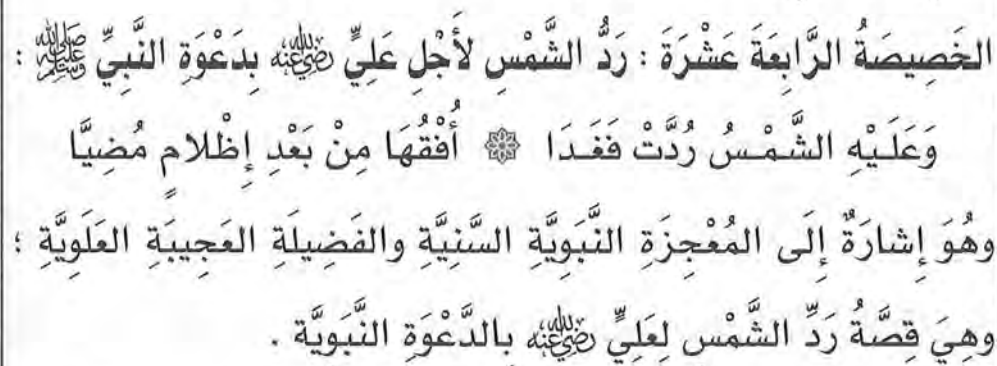 الخَصِيصَةُ الرَّابِعَةَ عَشْرَةَ : رَدُّ الشَّمْسِ لأَجْلِ عَلِيٍّ رضي الله عنه بِدَعْوَةِ النَّبِيِّ ﷺ :
وَعَلَيْهِ الشَّمْسُ رُدَّتْ فَغَدَا ۞ أُفْقُهَا مِنْ بَعْدِ إِظْلامٍ مُضِيَّا
وهُوَ إِشارَةٌ إِلَى المُعْجِزَةِ النَّبَوِيَّةِ السَّنِيَّةِ والفَضِيلَةِ العَجِيبَةِ العَلَوِيَّةِ ؛
وهِيَ قِصَّةُ رَدِّ الشَّمْسِ لِعَلِيٍّ رضي الله عنه بالدَّعْوَةِ النَّبَوِيَّة .